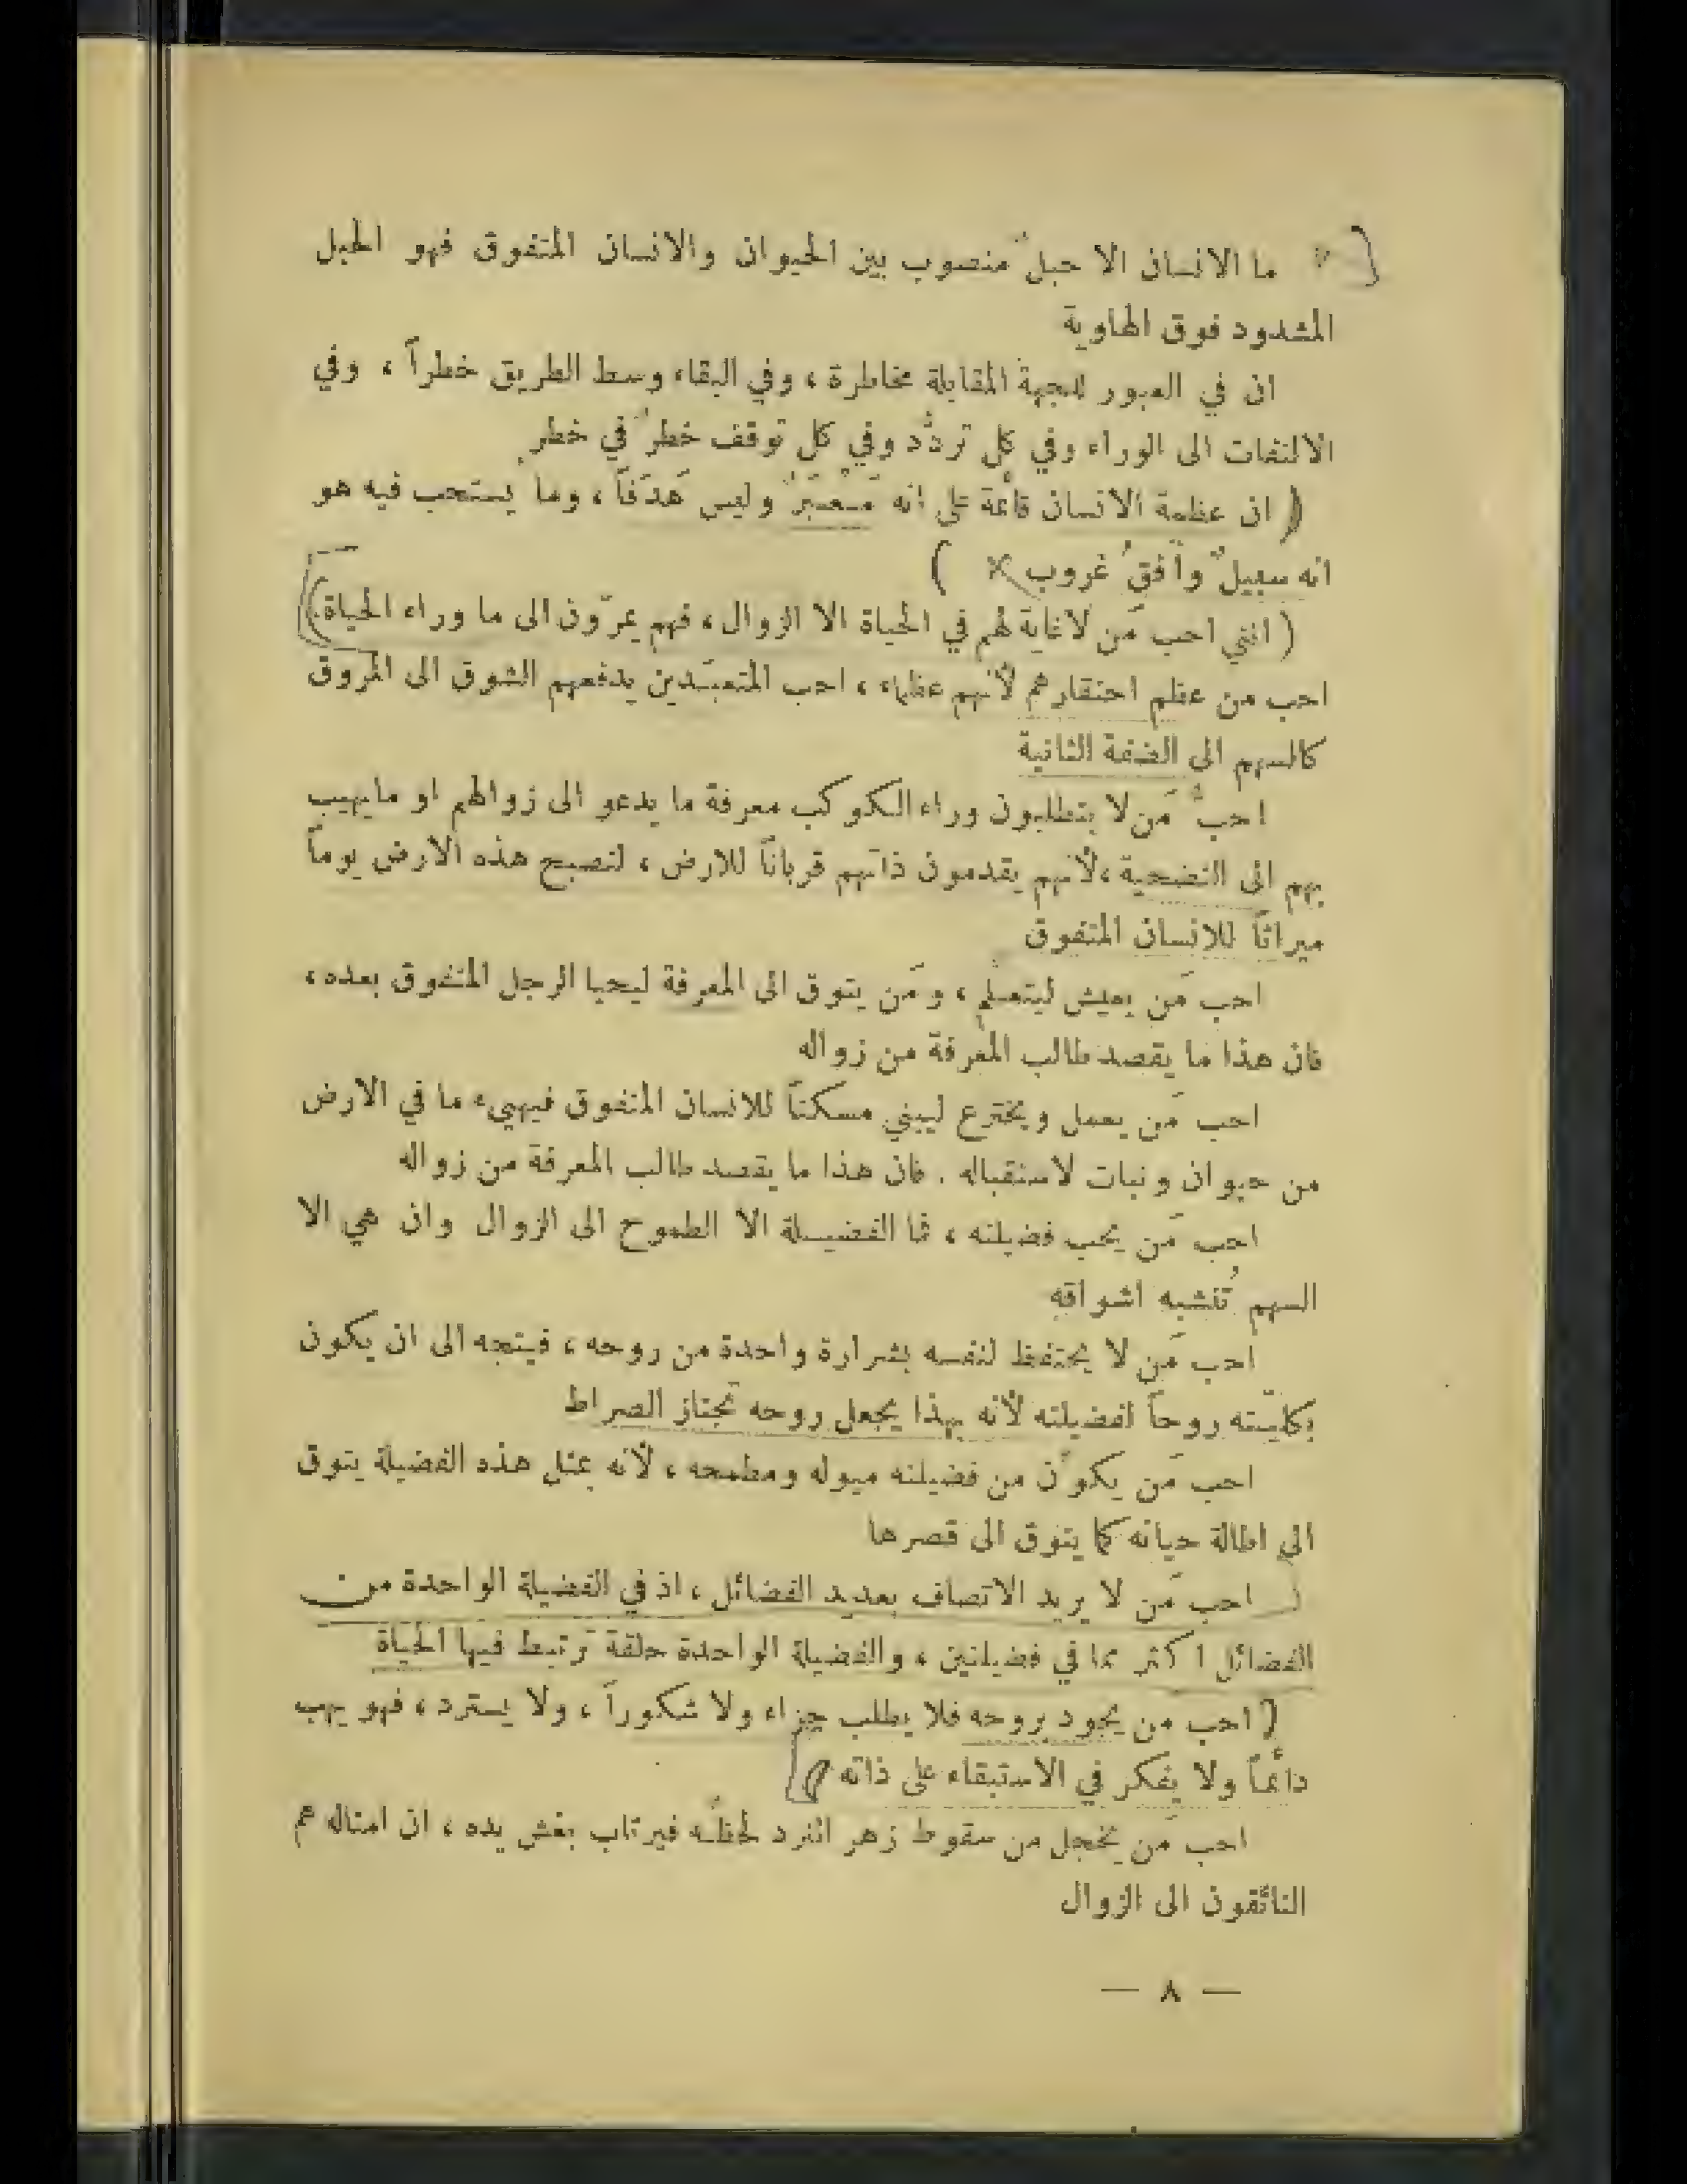 ما الانسان الا حبلٌ منصوب بين الحيوان والانسان المتفوق فهو الحبل
المشدود فوق الهاوية
ان في العبور للجهة المقابلة مخاطرة ، وفي البقاء وسط الطريق خطراً ، وفي
الالتفات الى الوراء وفي كل تردُّد وفي كل توقف خطرٌ في خطر
( ان عظمة الانسان قائمة على انه مَعبَرٌ وليس هَدَفاً ، وما يُستحب فيه هو
انه سبيلٌ وأفقُ غروب × )
( انني احب مَن لا غاية لهم في الحياة الا الزوال ، فهم يمرّون الى ما وراء الحياة )
احب من عظم احتقارهم لأنهم عظماء ، احب المتعبّدين يدفعهم الشوق الى المروق
كالسهم الى الضفة الثانية
احبُّ مَن لا يتطلبون وراء الكوكب معرفة ما يدعو الى زوالهم او مايهيب
بهم الى التضحية ، لأنهم يقدمون ذاتهم قرباناً للارض ، لتصبح هذه الارض يوماً
ميراثاً للانسان المتفوق
احب مَن يعيش ليتعلَّم ، ومَن يتوق الى المعرفة ليحيا الرجل المتفوق بعده ،
فان هذا ما يقصد طالب المعرفة من زواله
احب مَن يعمل ويخترع ليبني مسكناً للانسان المتفوق فيهيء ما في الارض
من حيوان ونبات لاستقباله . فان هذا ما يقصد طالب المعرفة من زواله
احب مَن يحب فضيلته ، فما الفضيلة الا الطموح الى الزوال وان هي الا
السهم تُنشبه اشواقه
احب مَن لا يحتفظ لنفسه بشرارة واحدة من روحه ، فيتجه الى ان يكون
بكليّته روحاً لفضيلته لأنه بهذا يجعل روحه تجتاز الصراط
احب مَن يكوّن من فضيلته ميوله ومطمحه ، لأنه بمثل هذه الفضيلة يتوق
الى اطالة حياته كما يتوق الى قصرها
احب مَن لا يريد الاتصاف بعديد الفضائل ، اذ في الفضيلة الواحدة من
الفضائل اكثر مما في فضيلتين ، والفضيلة الواحدة حلقة ترتبط فيها الحياة
[ احب من يجود بروحه فلا يطلب جزاء ولا شكوراً ، ولا يسترد ، فهو يهب
دائماً ولا يفكر في الاستبقاء على ذاته ]
احب مَن يخجل من سقوط زهر النرد لحظّه فيرتاب بغش يده ، ان امثاله هم
التائقون الى الزوال
— ٨ —